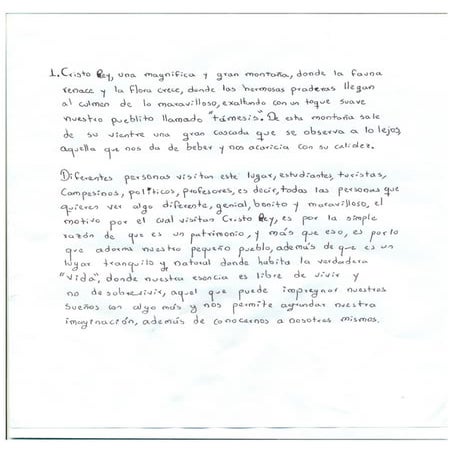 1. Cristo Rey, una magnifica y gran montaña, donde la fauna
renace y la flora crece, donde las hermosas praderas llegan
al culmen de lo maravilloso, exaltando con un toque suave
nuestro pueblito llamado "támesis". De esta montaña sale
de su vientre una gran cascada que se observa a lo lejos,
aquella que nos da de beber y nos acaricia con su calidez.
Diferentes personas visitan este lugar, estudiantes, turistas,
campesinos, políticos, profesores, es decir, todas las personas que
quieren ver algo diferente, genial, bonito y maravilloso, el
motivo por el cual visitan Cristo Rey, es por la simple
razón de que es un patrimonio, y más que eso, es por lo
que adorna nuestro pequeño pueblo, además de que es un
lugar tranquilo y natural donde habita la verdadera
"vida", donde nuestra esencia es libre de vivir y
no de sobrevivir, aquel que puede impregnar nuestros
sueños con algo más y nos permite agrandar nuestra
imaginación, además de conocernos a nosotros mismos.